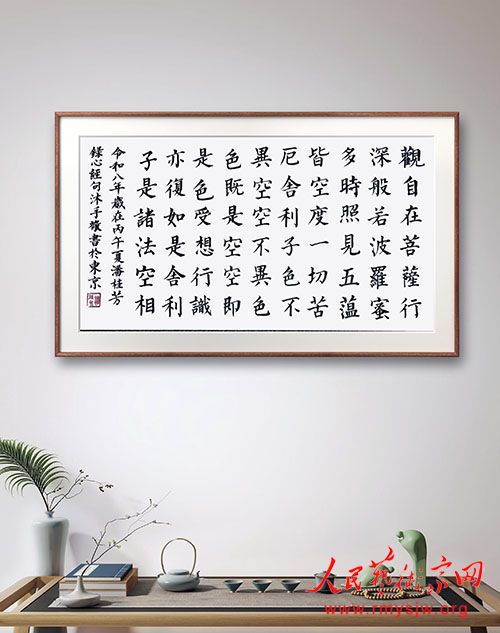 觀自在菩薩行
深般若波羅蜜
多時照見五薀
皆空度一切苦
厄舍利子色不
異空空不異色
色既是空空即
是色受想行識
亦復如是舍利
子是諸法空相
令和八年歲在丙午夏潘桂芳
錄心經句沐手敬書於東京
人民艺术家网
www.rmysjw.org